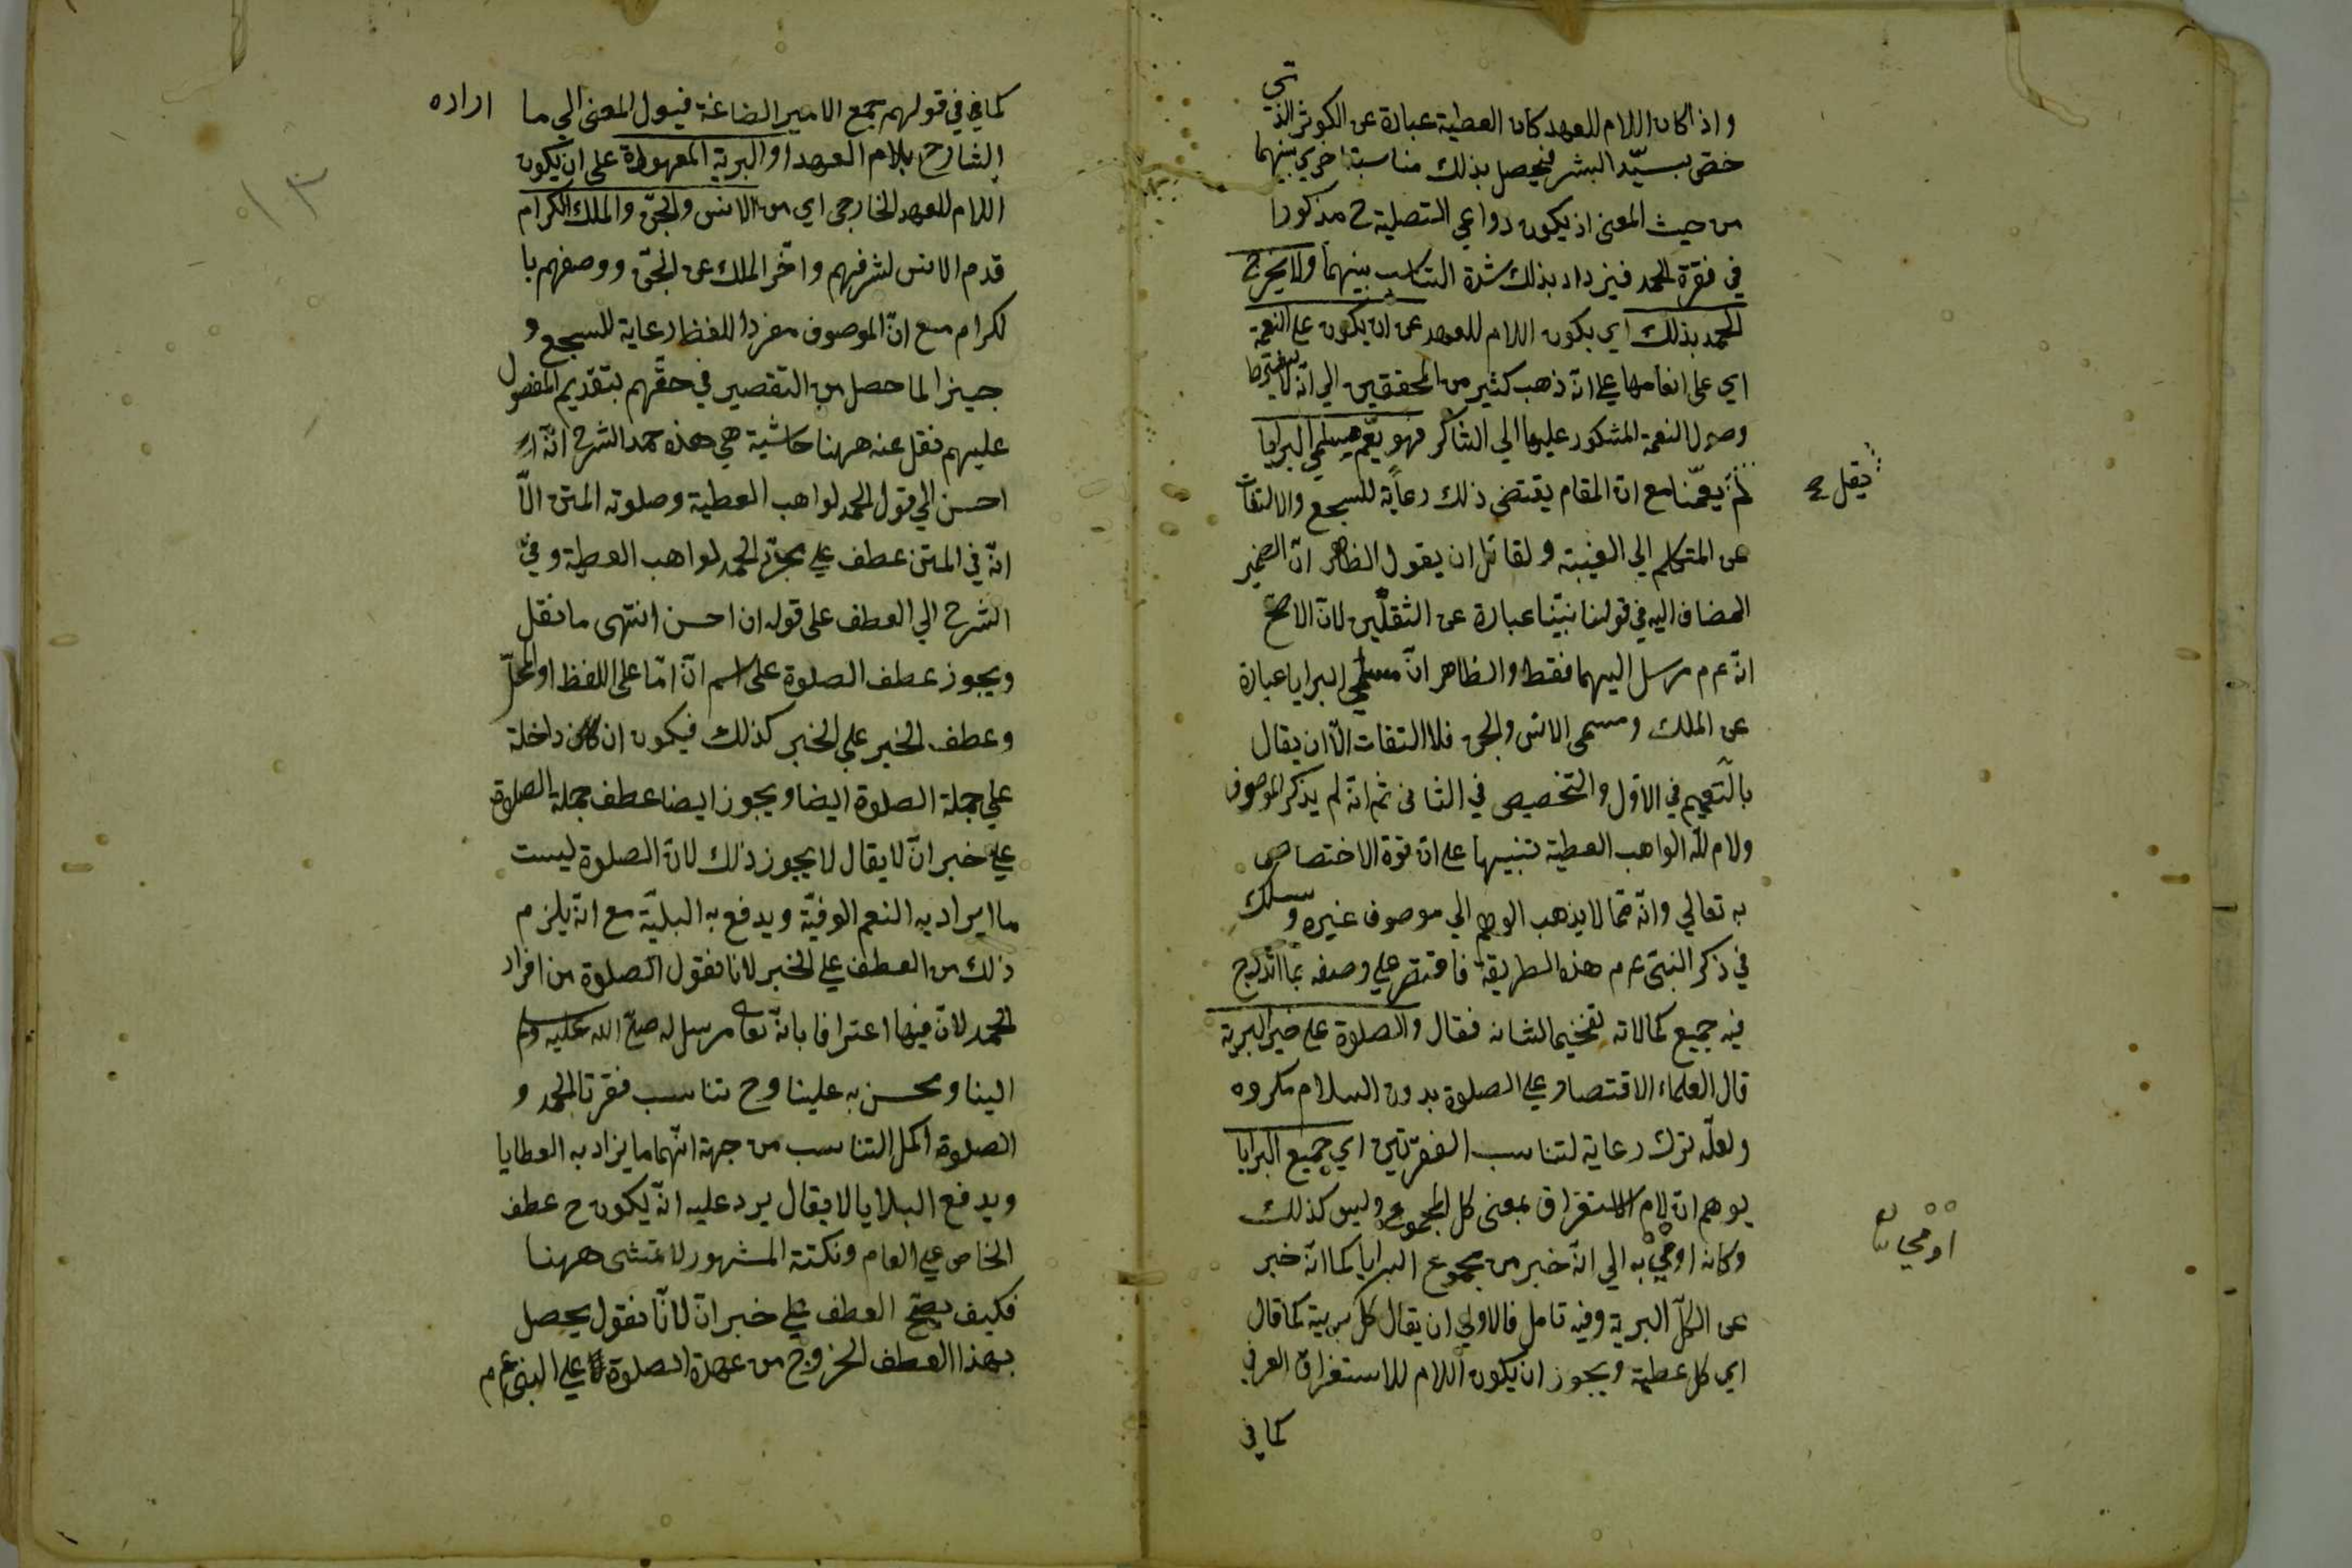 واذا كان اللام للعهد كان العطية عبارة عن الكوثر الذي
خصّ بسيّد البشر فيحصل بذلك مناسبة اخري بينهما
من حيث المعنى اذ يكون دواعي التصلية ح مذكورا
في فقرة الحمد فيزداد بذلك شدة التناسب بينهما ولا يخرج
الحمد بذلك اي بكون اللام للعهد عن ان يكون على النعمة
اي على انعامها علي انّه ذهب كثير من المحققين الي انّه لا يشترط
وصول النعمة المشكور عليها الي الشاكر فهو يعّم مسلمي البرايا
لم يقل يعمّنا مع انّ المقام يقتضى ذلك رعاية للسجع والالتفات
عن المتكلم الي الغيبة ولقائل ان يقول الظاهر انّ الضمير
المضاف اليه في قولنا نبيّنا عبارة عن الثقلين لانّ الاصحّ
انّه عم مرسل اليهما فقط والظاهر انّ مسلمي البرايا عبارة
عن الملك ومسمى الانس والجن فلا التفات الّا ان يقال
بالتعميم في الاوّل والتخصيص في الثاني ثم انّه لم يذكر الموصوف
ولام لله الواهب العطية تنبيها على انّ قوة الاختصاص
به تعالي وانّه ممّا لا يذهب الوهم الي موصوف غيره وسلك
في ذكر النبيّ عم هذه الطريقة فاقتصر علي وصفه بما اندرج
فيه جميع كمالاته تفخيما لشانه فقال والصلوة على خير البرية
قال العلماء الاقتصار علي الصلوة بدون السلام مكروه
ولعلّه ترك رعاية لتناسب الفقرتين اي جميع البرايا
يوهم انّ لام الاستغراق بمعنى كل المجموع وليس كذلك
وكانه اومي به الي انّه خبر من مجموع البرايا كما انّه خبر
عن الكلّ البرية وفيه تامل فالاولي ان يقال كل برية كما قال
اي كل عطية ويجوز ان يكون اللام للاستغراق العرفي
كما في
يقل صح
اومي
كما في في قولهم جمع الامير الصاغة فيول المعنى الي ما اراده
الشارح بلام العهد او البرية المعهودة على ان يكون
اللام للعهد الخارجى اي من الانس والجنّ والملك الكرام
قدم الانس لشرفهم واخّر الملك عن الجنّ ووصفهم با
لكرام مع انّ الموصوف مفردا للفظ رعاية للسجع و
جبزا لما حصل من التقصير في حقّهم بتقديم المفضول
عليهم نقل عنه ههنا حاشية هي هذه حمد الشرح انّه
احسن الي قول الحمد لواهب العطية وصلوته المتن الّا
انّه في المتن عطف علي مجرّد الحمد لواهب العطية وفي
الشرح الي العطف على قوله ان احسن انتهى ما نقل
ويجوز عطف الصلوة على اسم انّ امّا على اللفظ او المحلّ
وعطف الخبر علي الخبر كذلك فيكون ان داخلة
علي جملة الصلوة ايضا ويجوز ايضا عطف جملة الصلاة
علي خبر انّ لا يقال لا يجوز ذلك لانّ الصلوة ليست
ما ايراد به النعم الوفيّة ويدفع به البليّة مع انّه يلزم
ذلك من العطف علي الخبر لانا نقول الصلوة من افراد
الحمد لانّ فيها اعترافا بانّه تعالى مرسل له صلى الله عليه وسلم
الينا ومحسن به علينا وح تناسب فقرتا الحمد و
الصلوة اكمل التناسب من جهة انّهما ما يزاد به العطايا
ويدفع البلايا لا يقال يرد عليه انّه يكون ح عطف
الخاص علي العام ونكتة المشهور لا تمشى ههنا
فكيف يصحّ العطف علي خبر انّ لانّا نقول يحصل
بهذا العطف الخروج من عهدة الصلوة علي النبي عم
١٣